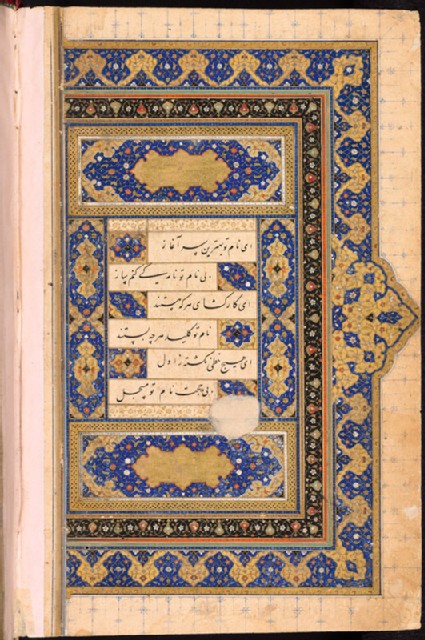 ای نام تو بهترین سر آغاز
بی نام تو نامه کی کنم باز
ای کارگشای هر که هستند
نام تو کلید هر چه بستند
ای هیچ خطی نگشته ز اول
بی حجت نام تو مسجل